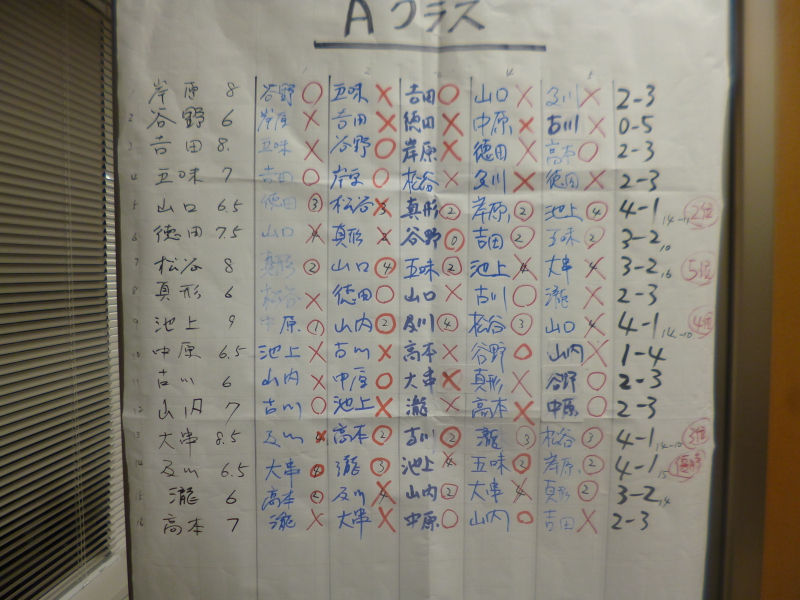 Aクラス
1 2 4 5
1 岸原 8 谷野 ○ 五味 × 吉田 ○ 山口 × 及川 × 2-3
2 谷野 6 岸原 × 吉田 × 徳田 × 中原 × 古川 × 0-5
3 吉田 8. 五味 × 谷野 ○ 岸原 × 徳田 × 高本 ○ 2-3
4 五味 7 吉田 ○ 岸原 ○ 松谷 × 及川 × 徳田 × 2-3
5 山口 6.5 徳田 ③ 松谷 真形 ② 岸原 ② 池上 ④ 4-1 2位
6 徳田 7.5 山口 真形 谷野 吉田 ② 五味 ② 3-2
7 松谷 8 真形 ② 山口 ④ 五味 ② 池上 大串 3-2 16 5位
8 真形 6 松谷 × 徳田 ○ 山口 × 古川 ○ 瀧 × 2-3
9 池上 9 中原 ① 山内 ② 及川 ④ 松谷 ③ 山口 4-1 4位
10 中原 6.5 池上 × 古川 × 高本 × 谷野 ○ 山内 × 1-4
11 古川 6 山内 × 中原 ○ 大串 × 真形 × 谷野 ○ 2-3
12 山内 7 古川 ○ 池上 × 瀧 × 高本 × 中原 ○ 2-3
13 大串 8.5 及川 高本 ② 古川 ② 瀧 ③ 松谷 ③ 4-1 3位
14 及川 6.5 大串 ④ 瀧 ③ 池上 五味 ② 岸原 ② 4-1
15 瀧 6 高本 ② 及川 山内 ② 大串 真形 ② 3-2 14
16 高本 7 瀧 × 大串 × 中原 ○ 山内 ○ 吉田 × 2-3